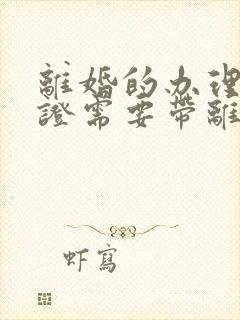 離婚的办理
證需要帶離
虾寫